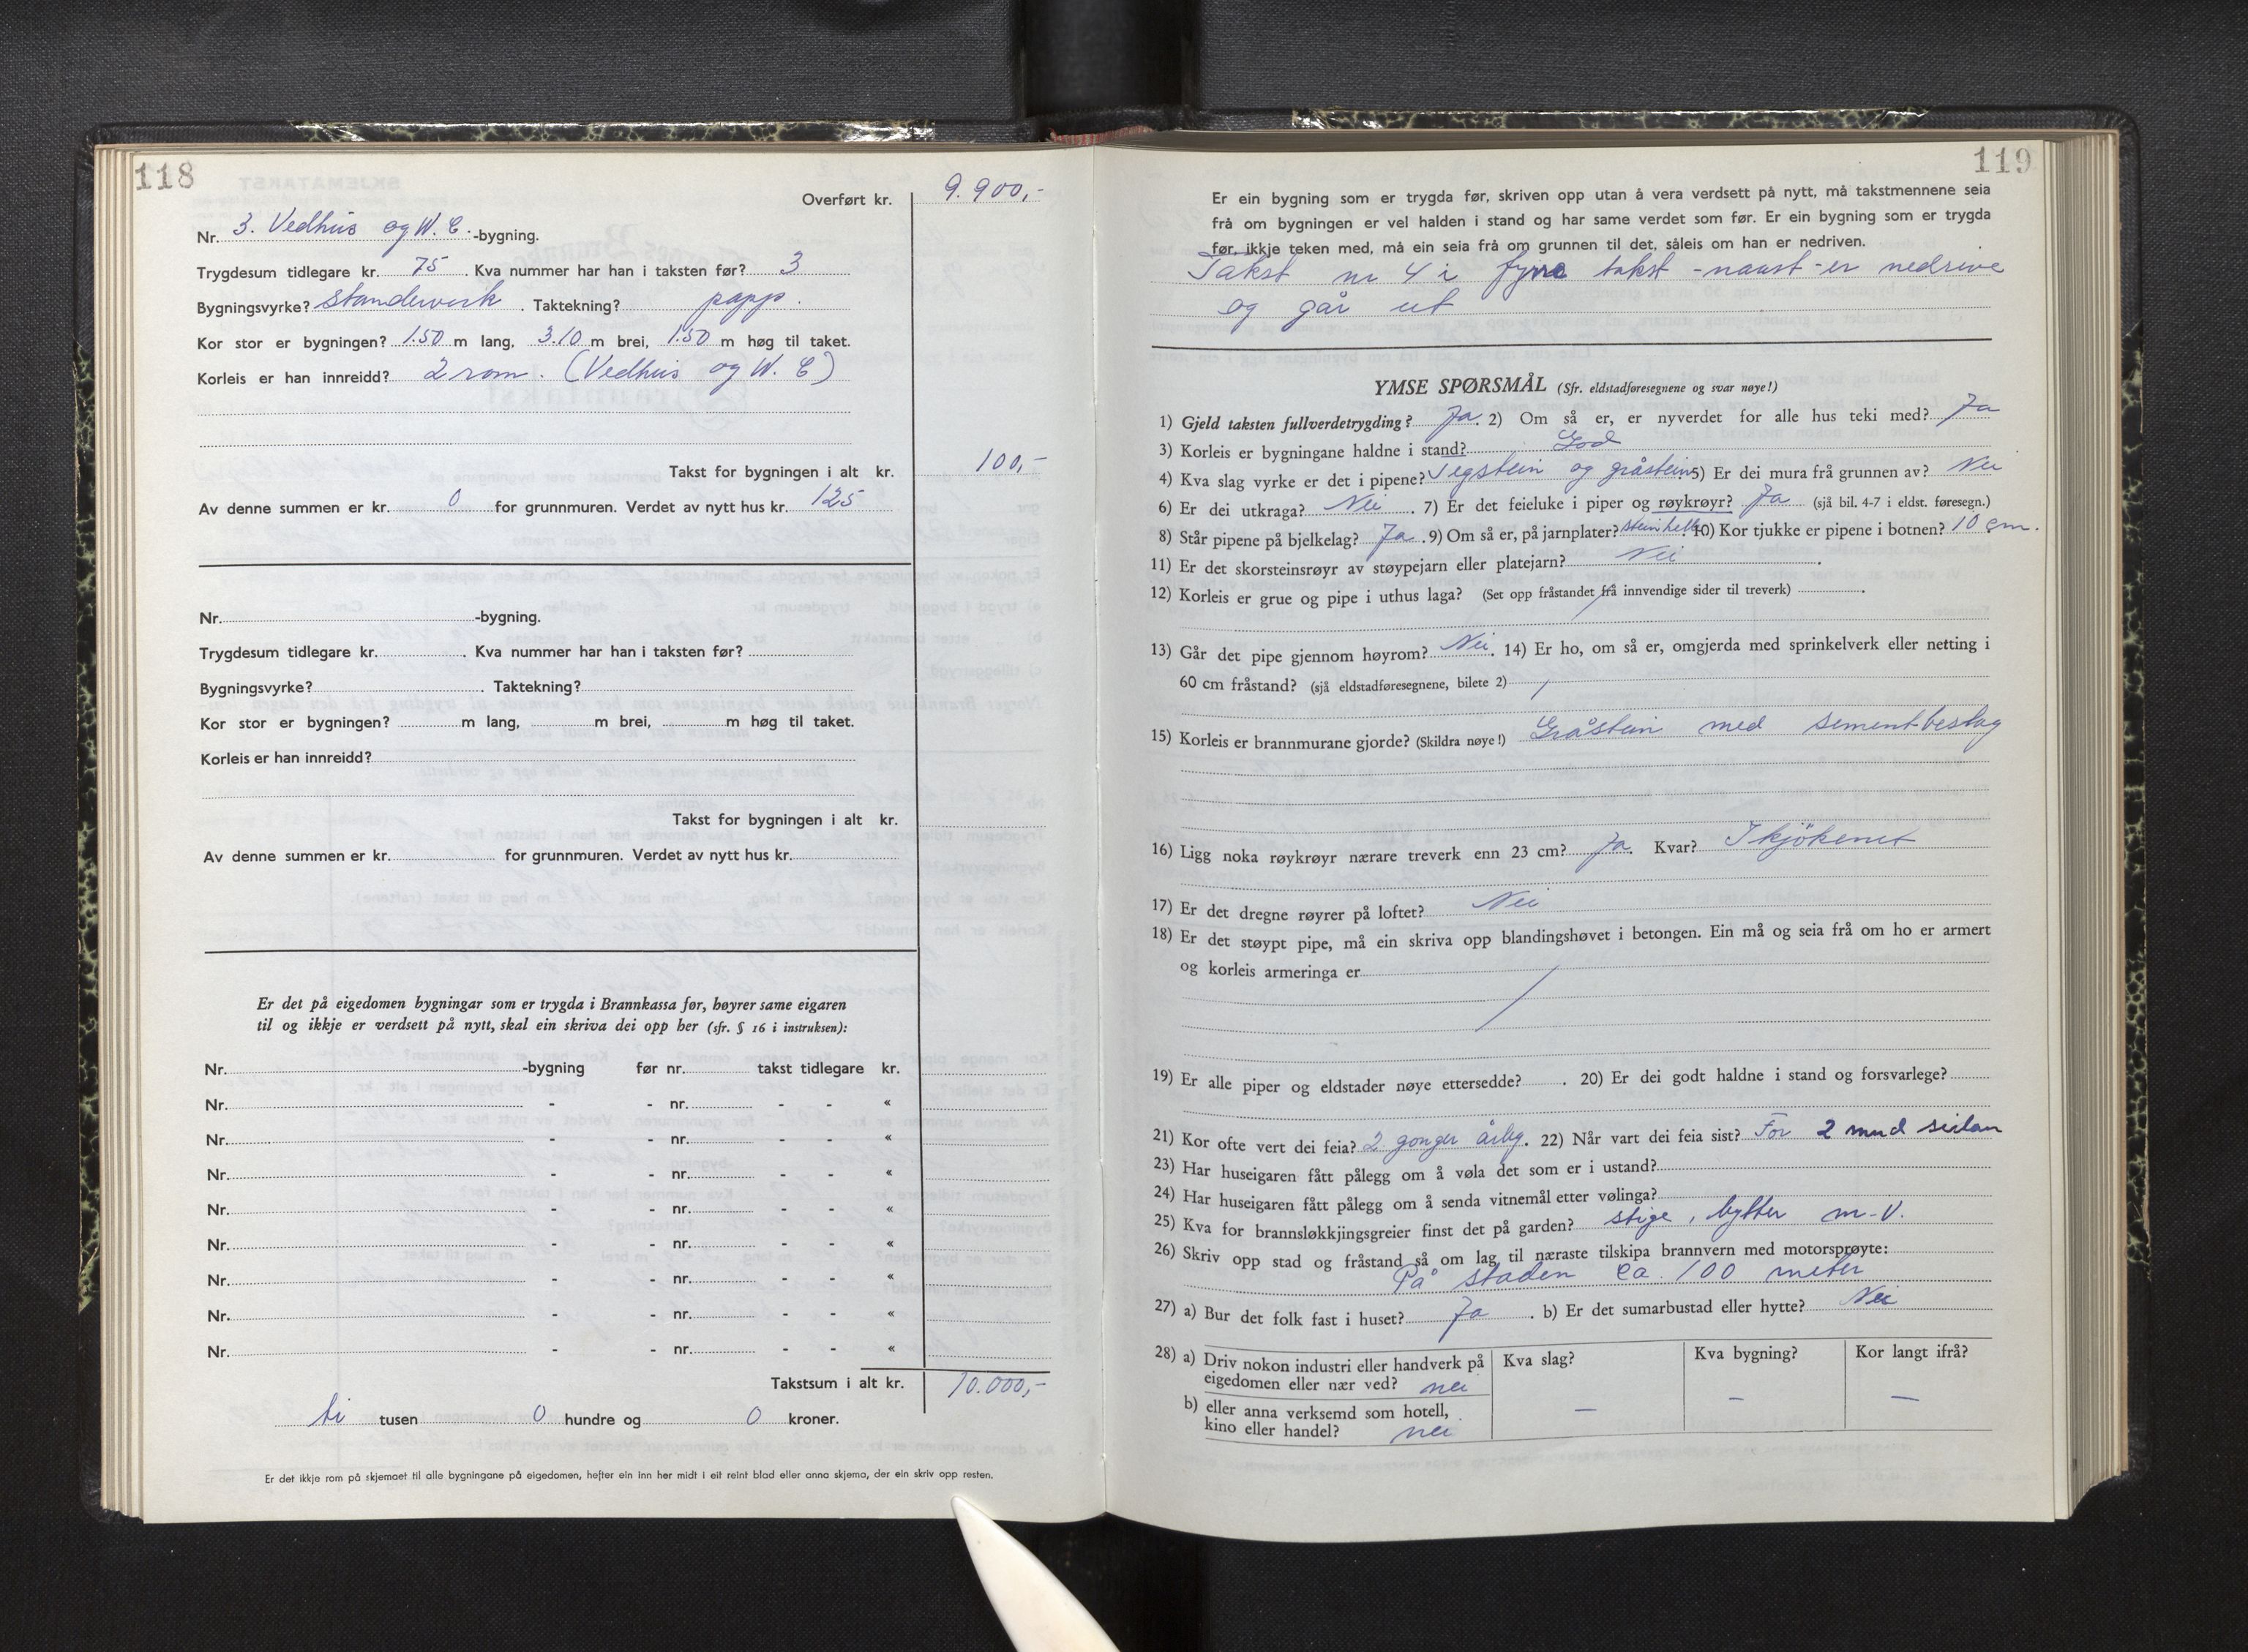 118
Overført kr. 9.900,-
Nr. 3. Vedhus og W.C. -bygning.
Trygdesum tidlegare kr. 75 . Kva nummer har han i taksten før? 3
Bygningsvyrke? Standerverk . Taktekning? papp.
Kor stor er bygningen? 1.50 m lang, 3.10 m brei, 1.50 m høg til taket.
Korleis er han innreidd? 2 rom. (Vedhus og W.C)
Takst for bygningen i alt kr. 100,-
Av denne summen er kr. 0 for grunnmuren. Verdet av nytt hus kr. 125
Nr. -bygning.
Trygdesum tidlegare kr. . Kva nummer har han i taksten før?
Bygningsvyrke? . Taktekning?
Kor stor er bygningen? m lang, m brei, m høg til taket.
Korleis er han innreidd?
Takst for bygningen i alt kr.
Av denne summen er kr. for grunnmuren. Verdet av nytt hus kr.
Er det på eigedomen bygningar som er trygda i Brannkassa før, høyrer same eigaren
til og ikkje er verdsett på nytt, skal ein skriva dei opp her (sfr. § 16 i instruksen):
Nr. -bygning før nr. takst tidlegare kr.
Nr. - - nr. - - «
Nr. - - nr. - - «
Nr. - - nr. - - «
Nr. - - nr. - - «
Nr. - - nr. - - «
Nr. - - nr. - - «
Nr. - - nr. - - «
Nr. - - nr. - - «
Takstsum i alt kr. 10.000,-
ti tusen 0 hundre og 0 kroner.
Er det ikkje rom på skjemaet til alle bygningane på eigedomen, hefter ein inn her midt i eit reint blad eller anna skjema, der ein skriv opp resten.
119
Er ein bygning som er trygda før, skriven opp utan å vera verdsett på nytt, må takstmennene seia
frå om bygningen er vel halden i stand og har same verdet som før. Er ein bygning som er trygda
før, ikkje teken med, må ein seia frå om grunnen til det, såleis om han er nedriven.
Takst nr 4 i fyrre takst - naust - er nedrive
og går ut
YMSE SPØRSMÅL (Sfr. eldstadføresegnene og svar nøye!)
1) Gjeld taksten fullverdetrygding? Ja. 2) Om så er, er nyverdet for alle hus teki med? Ja
3) Korleis er bygningane haldne i stand? God
4) Kva slag vyrke er det i pipene? Tegstein og gråstein. 5) Er dei mura frå grunnen av? Nei
6) Er dei utkraga? Nei . 7) Er det feieluke i piper og røykrøyr? Ja (sjå bil. 4-7 i eldst. føresegn.)
8) Står pipene på bjelkelag? Ja . 9) Om så er, på jarnplater? steinhelle. 10) Kor tjukke er pipene i botnen? 10 cm.
11) Er det skorsteinsrøyr av støypejarn eller platejarn? Nei .
12) Korleis er grue og pipe i uthus laga? (Set opp fråstandet frå innvendige sider til treverk) .
13) Går det pipe gjennom høyrom? Nei. 14) Er ho, om så er, omgjerda med sprinkelverk eller netting i
60 cm fråstand? (sjå eldstadføresegnene, bilete 2) /
15) Korleis er brannmurane gjorde? (Skildra nøye!) Gråstein med sementbeslag
16) Ligg noka røykrøyr nærare treverk enn 23 cm? Ja. Kvar? I kjökenet
17) Er det dregne røyrer på loftet? Nei
18) Er det støypt pipe, må ein skriva opp blandingshøvet i betongen. Ein må og seia frå om ho er armert
og korleis armeringa er /
19) Er alle piper og eldstader nøye ettersedde? . 20) Er dei godt haldne i stand og forsvarlege?
21) Kor ofte vert dei feia? 2 gonger årleg. 22) Når vart dei feia sist? For 2 mnd sidan
23) Har huseigaren fått pålegg om å vøla det som er i ustand?
24) Har huseigaren fått pålegg om å senda vitnemål etter vølinga?
25) Kva for brannsløkkjingsgreier finst det på garden? stige, bytter m.v.
26) Skriv opp stad og fråstand så om lag til næraste tilskipa brannvern med motorsprøyte:
På staden ca. 100 meter
27) a) Bur det folk fast i huset? Ja . b) Er det sumarbustad eller hytte? Nei
28) a) Driv nokon industri eller handverk på Kva slag? Kva bygning? Kor langt ifrå?
eigedomen eller nær ved? nei
b) eller anna verksemd som hotell, — — —
kino eller handel? nei